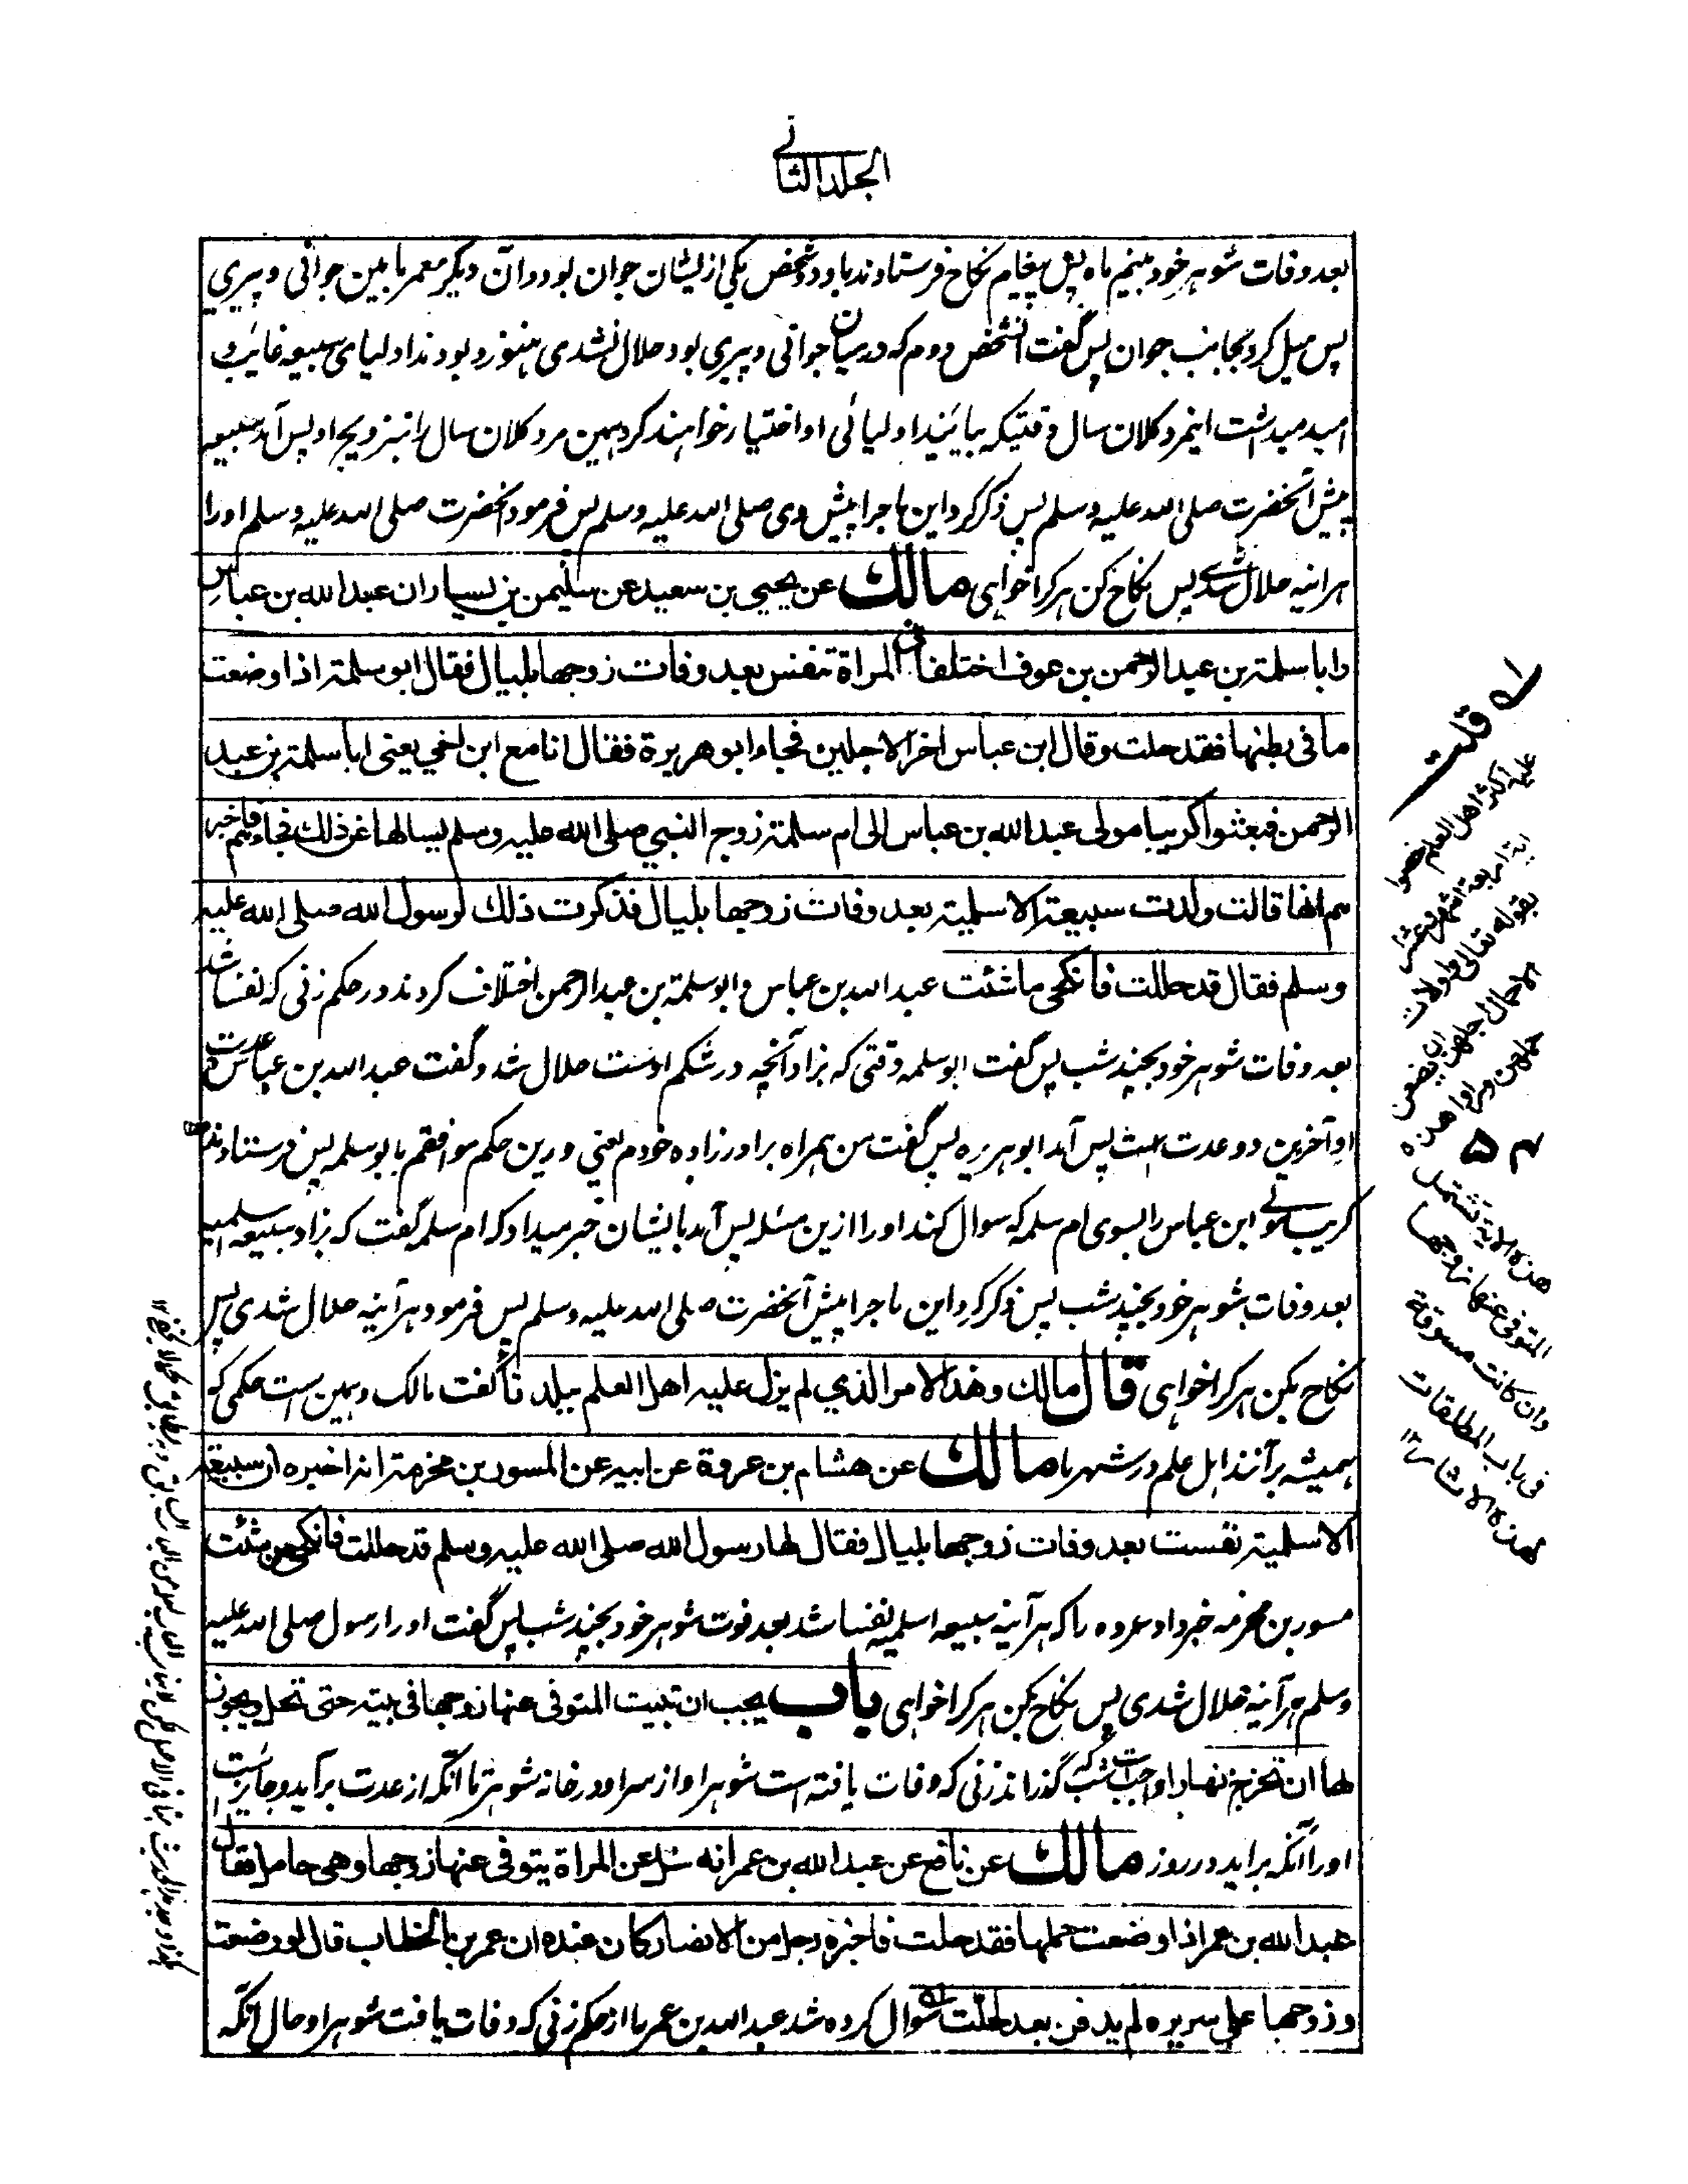 الجلد الثاني
بعد وفات شوهر خود بنیم ماه پس پیغام نکاح فرستادند باو دو شخص یکی از ایشان جوان بود و آن دیگر معمر ما بین جوانی و پیری
پس میل کرد بجانب جوان پس گفت آنشخص دوم که درمیان جوانی و پیری بود حلال نشدی هنوز و بودند اولیای سبیعه غایب و
امید میداشت اینمرد کلان سال وقتیکه بیائیند اولیائی او اختیار خواهند کرد همین مرد کلان سال را بتزویج او پس آمد سبیعه
پیش آنحضرت صلی الله علیه وسلم پس ذکر کرد این ماجرا پیش وی صلی الله علیه وسلم پس فرمود آنحضرت صلی الله علیه وسلم اورا
هرآئنه حلال شدی پس نکاح کن هرکرا خواهی مالك عن يحيى بن سعيد عن سليمن بن يسار ان عبد الله بن عباس
وابا سلمة بن عبد الرحمن بن عوف اختلفا فى المراة تنفس بعد وفات زوجها بليال فقال ابو سلمة اذا وضعت
ما فى بطنها فقد حلت وقال ابن عباس اخر الاجلين فجاء ابو هريرة فقال انا مع ابن اخي يعنى ابا سلمة بن عبد
الرحمن فبعثوا كريبا مولى عبد الله بن عباس الى ام سلمة زوج النبي صلى الله عليه وسلم يسالها عن ذلك فجاءهم فاخبر
هم انها قالت ولدت سبيعة الاسلمية بعد وفات زوجها بليال فذكرت ذلك لرسول الله صلى الله عليه
وسلم فقال قد حللت فانكحى ما شئت عبد الله بن عباس و ابو سلمة بن عبد الرحمن اختلاف کردند در حکم زنی که نفسا شد
بعد وفات شوهر خود بچند شب پس گفت ابو سلمه وقتی که بزاد آنچه در شکم اوست حلال شد و گفت عبد الله بن عباس عدت
او آخرین دو عدت است پس آمد ابو هریره پس گفت من همراه برادر زاده خودم یعنی درین حکم موافقم بابو سلمه پس فرستادند
کریب مولے ابن عباس را بسوی ام سلمه که سوال کند اورا ازین مسئله پس آمد بایشان خبر میداد که ام سلمه گفت که بزاد سبیعه اسلمیه
بعد وفات شوهر خود بچند شب پس ذکر کرد این ماجرا پیش آنحضرت صلی الله علیه وسلم پس فرمود هرآینه حلال شدی پس
نکاح بکن هرکرا خواهی قال مالك وهذا الامر الذي لم يزل عليه اهل العلم ببلدنا گفت مالک و همین است حکمی که
همیشه برآنند اهل علم در شهر ما مالك عن هشام بن عروة عن ابيه عن المسور بن مخرمة انه اخبره ان سبيعة
الاسلمية نفست بعد وفات زوجها بليال فقال لها رسول الله صلى الله عليه وسلم قد حللت فانكحى من شئت
مسور بن مخرمه خبر داد عروه را که هرآینه سبیعه اسلمیه نفسا شد بعد فوت شوهر خود بچند شب پس گفت اورا رسول صلی الله علیه
وسلم هرآینه حلال شدی پس نکاح بکن هرکرا خواهی باب يجب ان تبيت المتوفى عنها زوجها فى بيته حتى تحل ويجوز
لها ان تخرج نهارا واجب است که شب گذراند زنی که وفات یافته است شوهر او از سر او در خانه شوهر تا آنکه از عدت برآید و جائز است
اورا آنکه براید در روز مالك عن نافع عن عبد الله بن عمر انه سئل عن المراة يتوفى عنها زوجها وهى حامل فقال
عبد الله بن عمر اذا وضعت حملها فقد حلت فاخبره رجل من الانصار كان عنده ان عمر بن الخطاب قال لو وضعت
وزوجها على سريره لم يدفن بعد لحلت سوال کرده شد عبد الله بن عمر ما از حکم زنی که وفات یافت شوهر او حال آنکه
له قلت
عليه اكثر اهل العلم خصوا
اية اربعة اشهر وعشرا
بقوله تعالى واولات
الاحمال اجلهن ان يضعن
حملهن
هذه الاية تشتمل
المتوفى عنها زوجها
وان كانت مسوقة
فى باب المطلقات